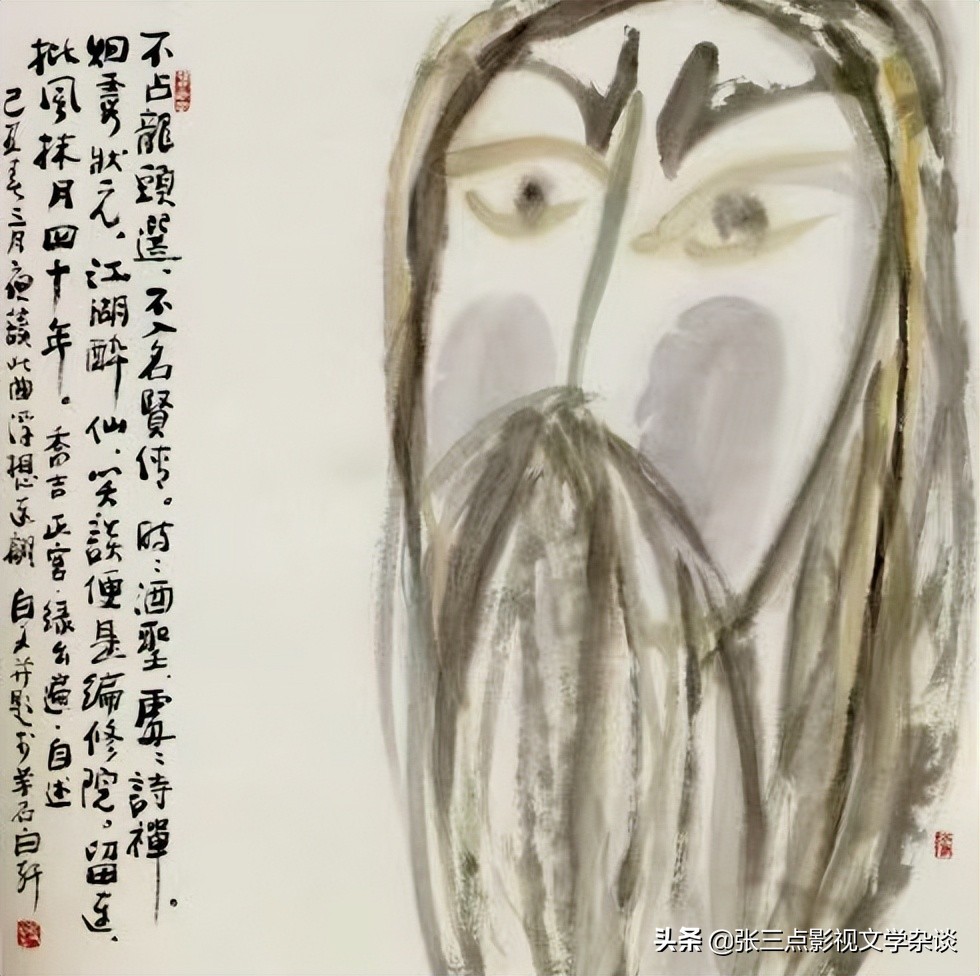 不占龍頭選、不入名賢傳。時〻酒聖、處〻詩禪。
烟霞狀元、江湖醉仙、笑談便是編修院。留連、
批風抹月四十年。喬吉正宮·綠幺遍·自述
己丑春三月夜讀此曲浮想連翩 白 并題於 石白軒
头条 @张三点影视文学杂谈